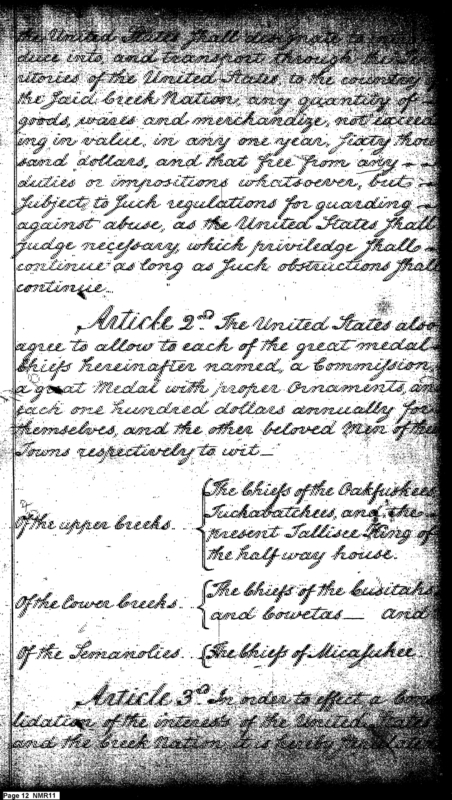 the United States shall designate to intro
duce into, and transport through the Ter
ritories of the United States, to the country
the said Creek Nation, any quantity of
goods, wares and merchandize, not exceed
ing in value, in any one year, sixty thou
sand dollars, and that free from any
duties or impositions whatsoever, but
subject, to such regulations for guarding
against abuse, as the United States shall
judge necessary, which priviledge shall
continue as long as such obstructions shall
continue.
Article 2nd The United States also
agree to allow to each of the great medal
Chiefs hereinafter named, a Commission,
a great Medal with proper Ornaments, and
each one hundred dollars annually for
themselves, and the other beloved Men of their
Towns respectively to wit—
Of the upper Creeks. { The Chiefs of the Oakfuskees
Tuckabatchees, and the
present Tallisee King of
the half way house.
Of the Lower Creeks. { The Chiefs of the Cusitahs
and Cowetas— and
Of the Semanolies { The Chiefs of Micasukee
Article 3rd In order to effect a Conso
lidation of the interests of the United States
and the Creek Nation, it is hereby stipulated
Page 12 NMR11